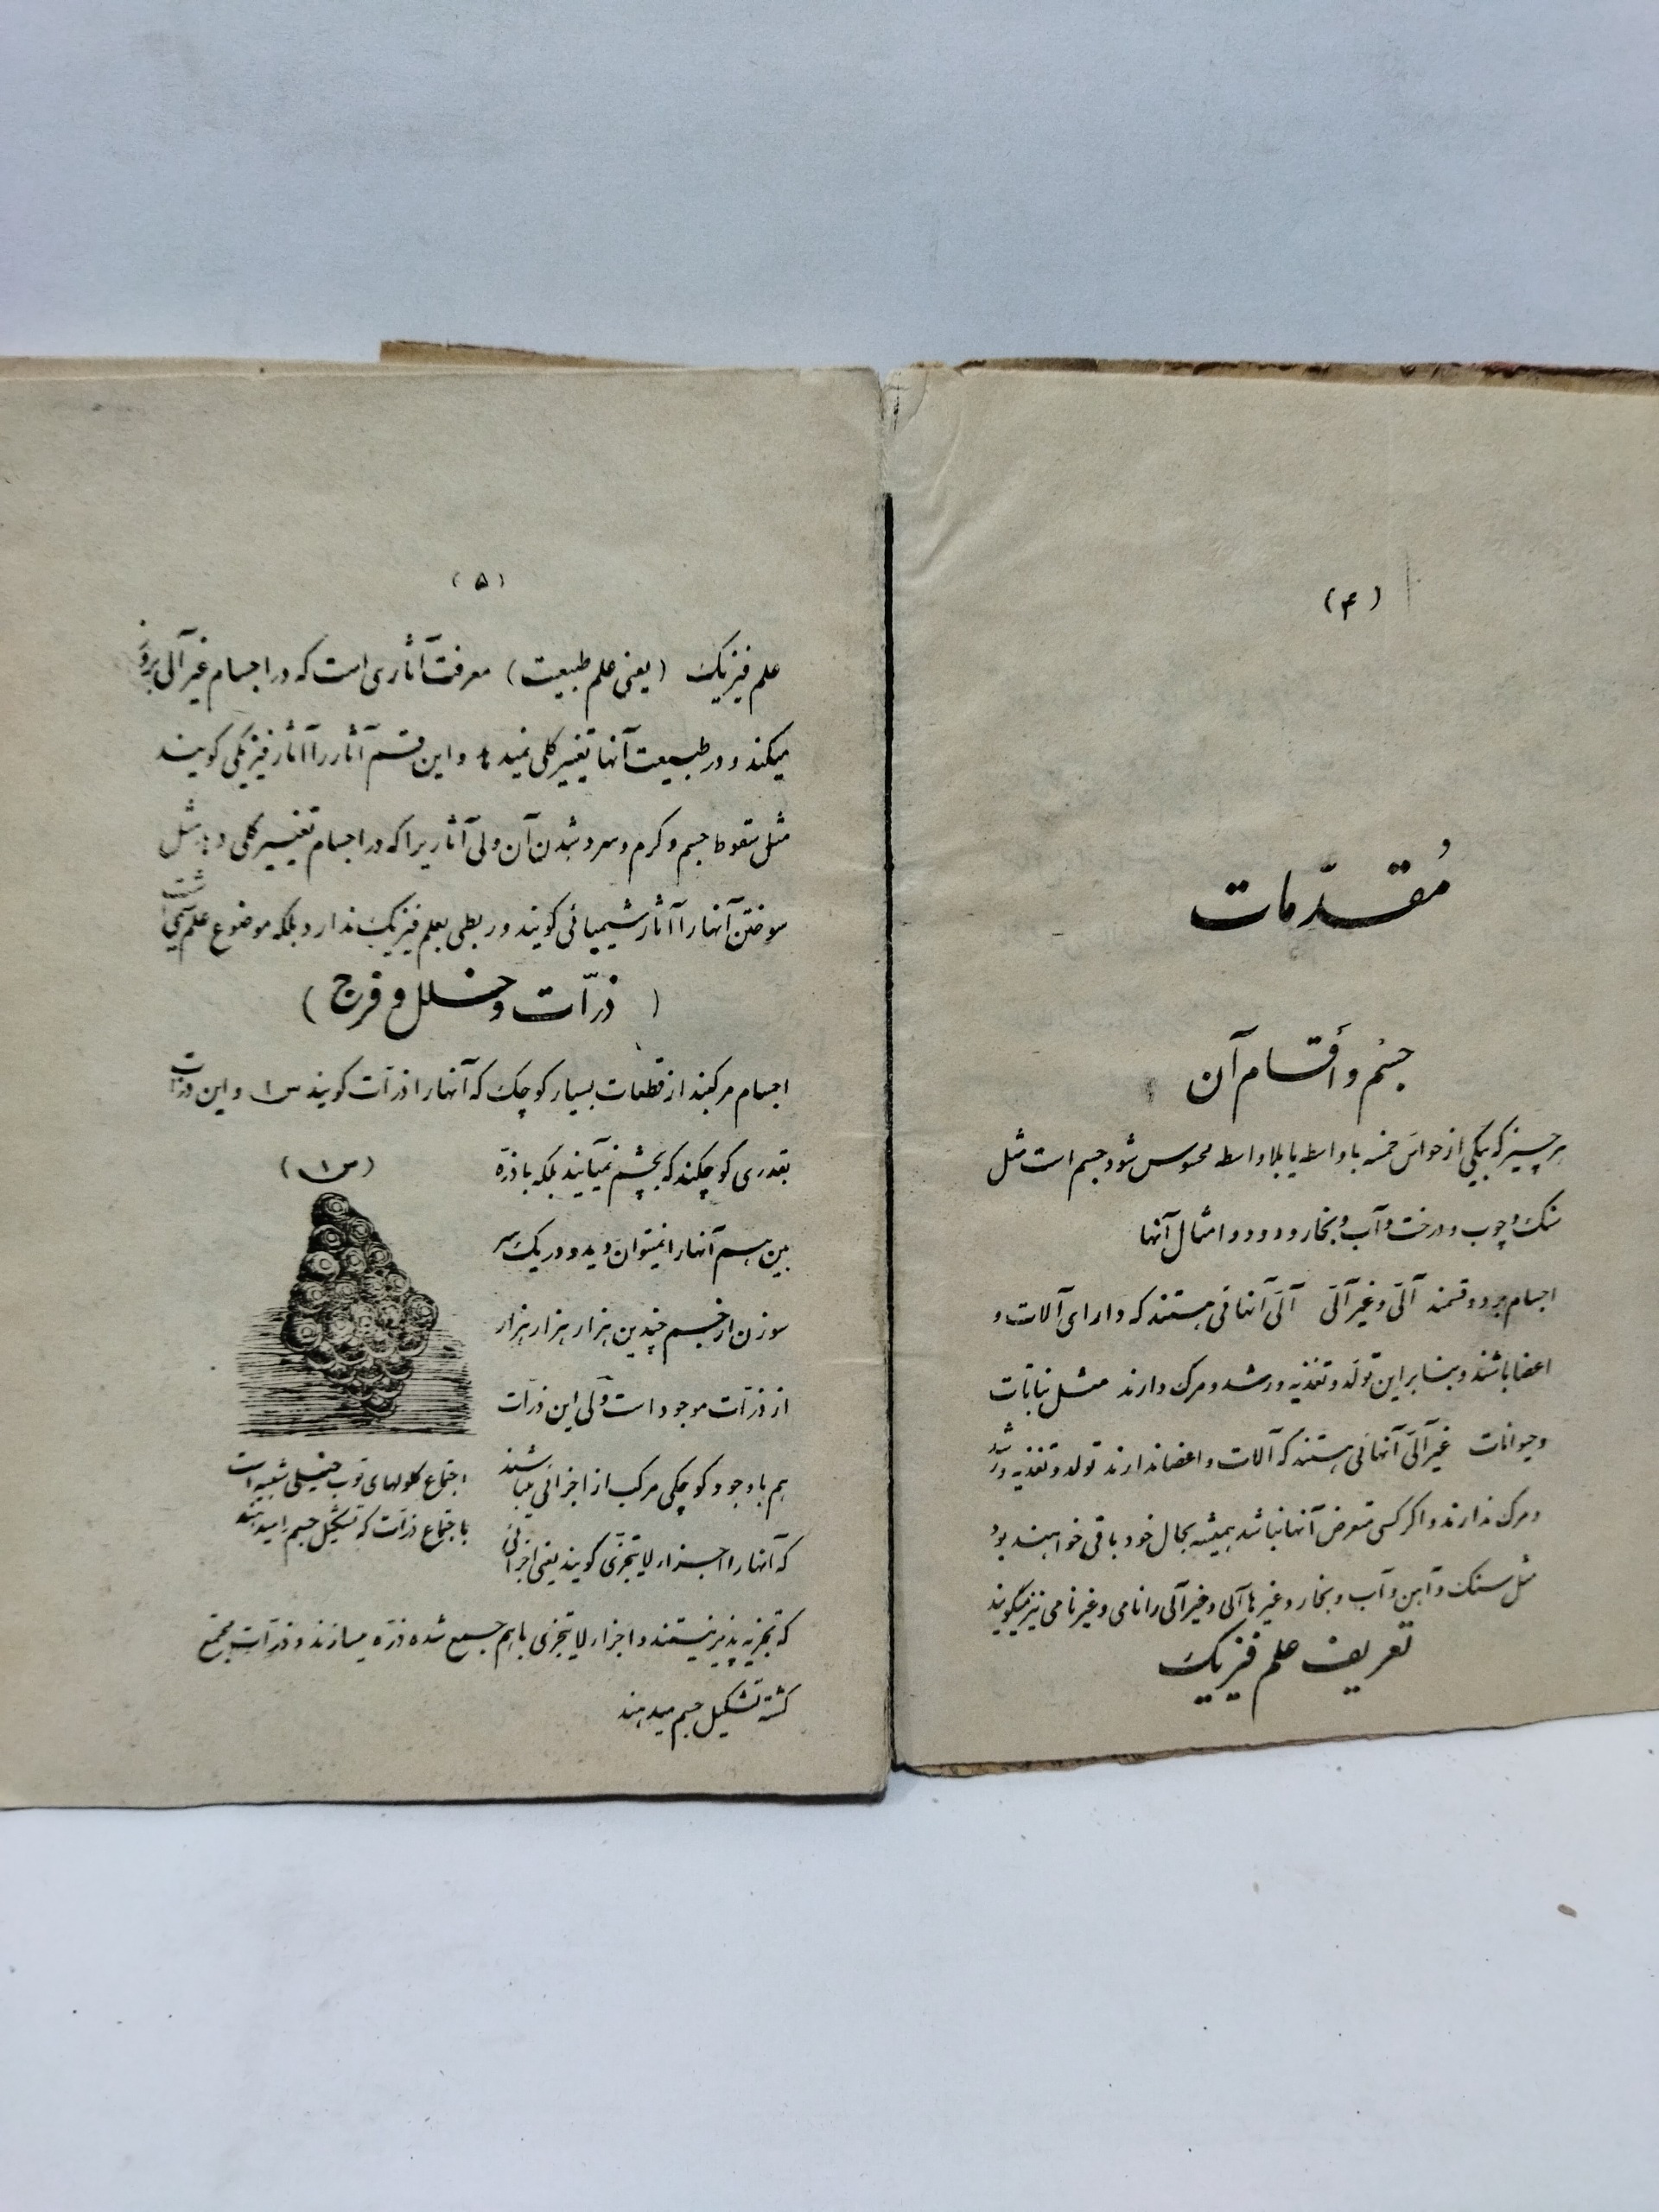 (۴)
مُقدّمات
جسْم و أقسام آن
هر چیز که بیکی از حواس خمسه با واسطه یا بلا واسطه محسوس شود جسم است مثل
سنک و چوب و درخت و آب و بخار و دود و امثال آنها
اجسام بر دو قسمند آلی و غیر آلی آلی آنهائی هستند که دارای آلات و
اعضا باشند و بنا بر این تولّد و تغذیه و رشد و مرک دارند مثل نباتات
و حیوانات غیر آلی آنهائی هستند که آلات و اعضا ندارند تولد و تغذیه و رشد
و مرک ندارند و اکر کسی متعرض آنها نباشد همیشه بحال خود باقی خواهند بود
مثل سنک و آهن و آب و بخار و غیرها آلی و غیر آلی را نامی و غیر نامی نیز میکویند
تعریف علم فیزیک
(۵)
علم فیزیک (یعنی علم طبیعت) معرفت آثاری است که در اجسام غیر آلی بروز
میکند و در طبیعت آنها تغییر کلی نمیدهد و این قسم آثار را آثار فیزیکی کویند
مثل سقوط جسم و کرم و سرد شدن آن ولی آثاریرا که در اجسام تغییر کلی دهد مثل
سوختن آنها را آثار شیمیائی کویند و ربطی بعلم فیزیک ندارد بلکه موضوع علم شیمی است
(ذرّات و خلل و فرج)
اجسام مرکبند از قطعات بسیار کوچک که آنها را ذرّات کویند س ۱ و این ذرّات
بقدری کوچکند که بچشم نمیآیند بلکه با ذرّه
بین هم آنها را نمیتوان دید و در یک سر
سوزن از جسم چندین هزار هزار هزار
از ذرّات موجود است ولی این ذرّات
هم با وجود کوچکی مرکب از اجزائی میباشند
که آنها را اجزاء لا یتجزّی کویند یعنی اجزائی
که تجزیه پذیر نیستند و اجزاء لا یتجزی با هم جمع شده ذرّه میسازند و ذرّات مجتمع
کشته تشکیل جسم میدهند
(س ۱)
اجتماع کلولهای توپ خیلی شبیه است
باجتماع ذرّات که تشکیل جسم را میدهند